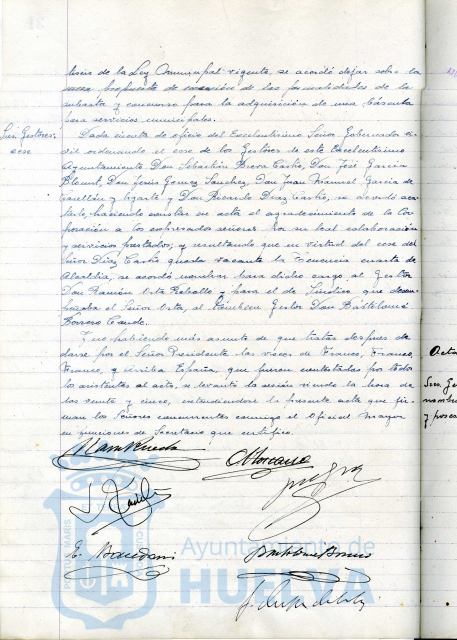 tercio de la Ley Municipal vigente, se acordó dejar sobre la
mesa propuesta de exención de las formalidades de la
subasta y concurso para la adquisición de una báscula
para servicios municipales.
Sres. Gestores:
cese
Dada cuenta de oficio del Excelentísimo Señor Gobernador ci-
vil ordenando el cese de los Gestores de este Excelentísimo
Ayuntamiento, Don Sebastián Brera Carlo, Don José García
Don Jesús Gómez Sánchez, Don Juan Manuel García de
y Ugarte y Don Ricardo Díaz Carlo, se acordó aca-
tarlo, haciendo constar en acta el agradecimiento de la Cor-
poración a los expresados señores por su leal colaboración
y servicios prestados; y resultando que en virtud del cese del
Señor Díaz Carlo queda vacante la Tenencia cuarta de
Alcaldía, se acordó nombrar para dicho cargo al Gestor
Don Ramón Orta Rebollo y para el de Síndico que desem-
peñaba el Señor Orta, al también Gestor Don Bartolomé
Borrero Conde.
Y no habiendo más asuntos de que tratar después de
darse por el Señor Presidente las voces de Franco, Franco,
Franco, y Arriba España, que fueron contestadas por todos
los asistentes al acto, se levantó la sesión siendo la hora de
las veinte y cinco, extendiéndose la presente acta que fir-
man los Señores concurrentes conmigo el Oficial Mayor
en funciones de Secretario que certifico.
Bartolomé Borrero
Ayuntamiento de
HUELVA
Acta
Sres. Ge
nombra
y poses